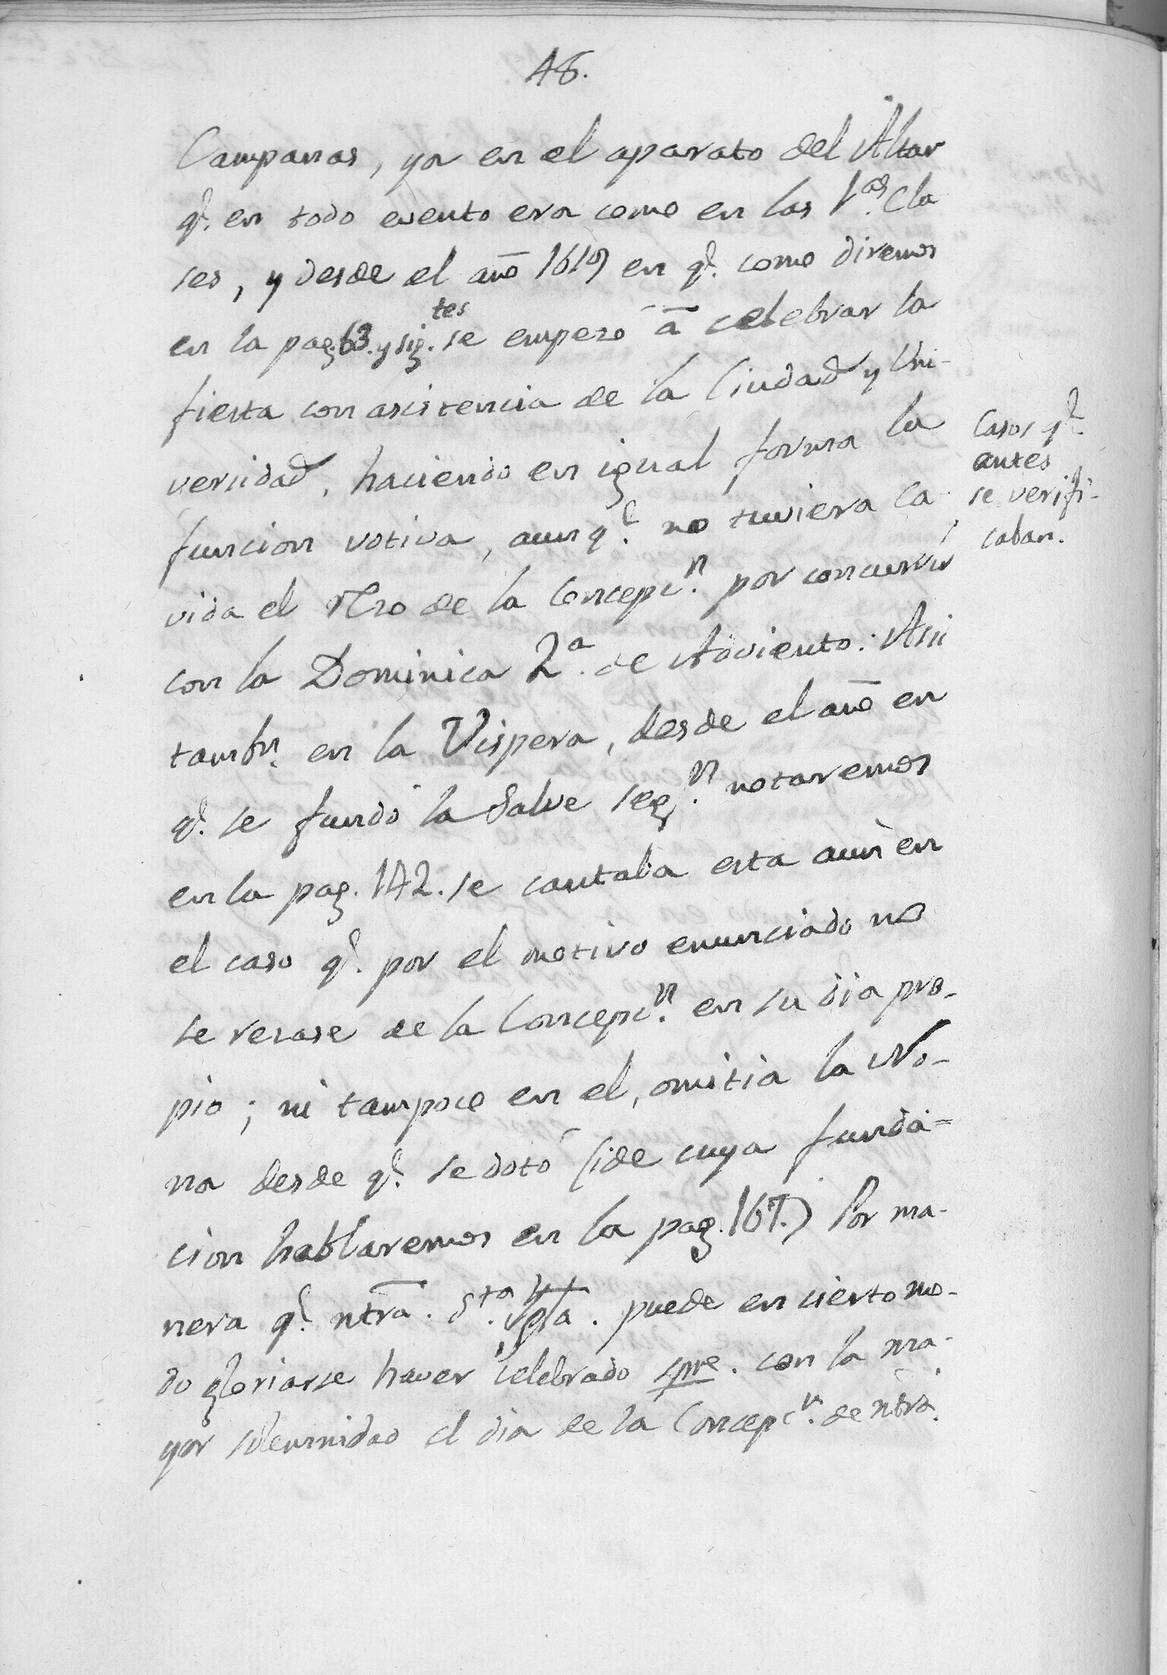 48.
Campanas, ya en el aparato del Altar
q.e en todo evento era como en las 1.as Cla
ses, y desde el año 1619 en q.e como diremos
en la pag. 63. y sig.tes se empezo à celebrar la
fiesta con asistencia de la Ciudad y Uni-
versidad, haciendo en igual forma la
funcion votiva, aunq.e no tuviera ca
vida el rezo de la Concepc.n por concurrir
con la Dominica 2.a de Adviento: Asi
tambn. en la Vispera, desde el año en
q.e se fundó la Salve seg.n notaremos
en la pag. 142. se cantaba esta aun en
el caso q.e por el motivo enunciado no
se rezase de la Concepc.n en su dia pro-
pio; ni tampoco en el, omitia la No-
na desde q.e se dotó (de cuya funda=
cion hablaremos en la pag. 167.) Por ma-
nera q.e ntra. S.ta Ygla. puede en cierto mo-
do gloriarse haver celebrado spre. con la ma-
yor solemnidad el dia de la Concepc.n de ntra.
Casos q.e
antes
se verifi-
caban.